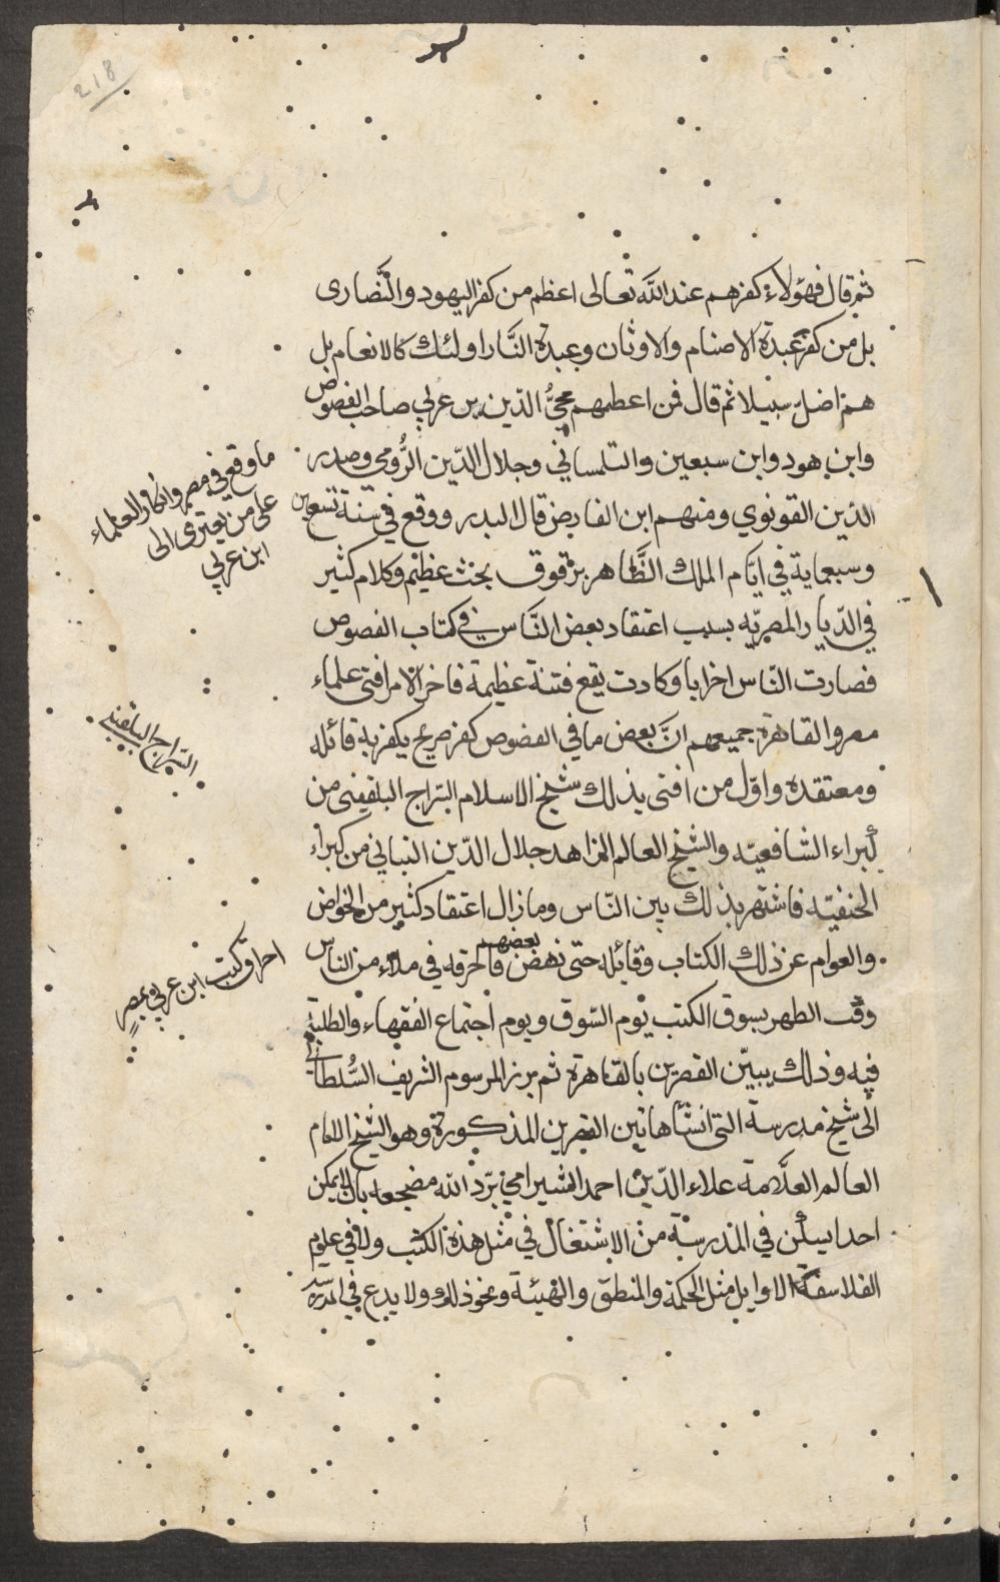 218
ثم قال فهؤلاء كفرهم عند الله تعالى اعظم من كفر اليهود والنصارى
بل من كفر عبدة الاصنام والاوثان وعبدة النار اولئك كالانعام بل
هم اضل سبيلا ثم قال فمن اعظمهم محيي الدين بن عربي صاحب الفصوص
وابن هود وابن سبعين والتلمساني وجلال الدين الرومي وصدر
الدين القونوي ومنهم ابن الفارض قال البدر ووقع في سنة تسعين
وسبعماية في ايام الملك الظاهر برقوق بحث عظيم وكلام كثير
في الديار المصريه بسبب اعتقاد بعض الناس في كتاب الفصوص
فصارت الناس احزابا وكادت يقع فتنة عظيمة فاخر الامر افتى علماء
مصر والقاهرة جميعهم ان بعض ما في الفصوص كفر صريح يكفر به قائله
ومعتقده واول من افتى بذلك شيخ الاسلام السراج البلقيني من
كبراء الشافعيه والشيخ العالم الزاهد جلال الدين التباني من كبراء
الحنفيه فاشتهر بذلك بين الناس وما زال اعتقاد كثير من الخواض
والعوام عن ذلك الكتاب وقائله حتى نهض بعضهم فاحرقه في ملاء من الناس
وقت الظهر بسوق الكتب يوم السوق ويوم اجتماع الفقهاء والطلبة
فيه وذلك ببين القصرين بالقاهرة ثم برز المرسوم الشريف السلطاني
الى شيخ مدرسة التي انشأها بين القصرين المذكورة وهو الشيخ الامام
العالم العلامة علاء الدين احمد السيرامي برد الله مضجعه بان لا يمكن
احدا يسكن في المدرسة من الاشتغال في مثل هذه الكتب ولا في علوم
الفلاسفة الاوايل مثل الحكمة والمنطق والهيئة ونحو ذلك ولا يدع في المدرسة
ما وقع في مصر وانكار العلماء
على من يعتزى الى
ابن عربي
السراج البلقيني
احراق كتب ابن عربي بمصر